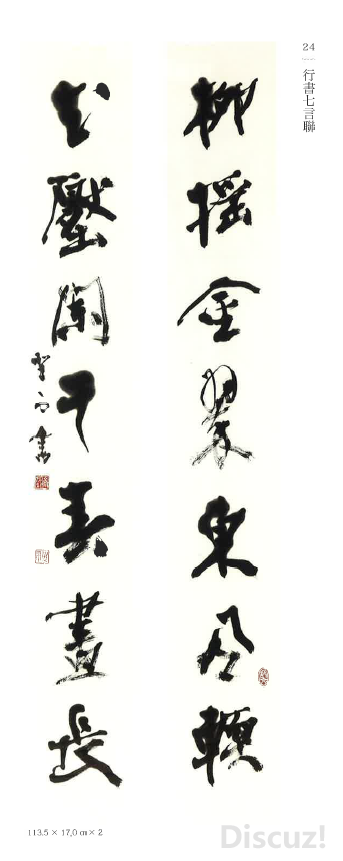 24
行書七言聯
柳搖金翠東風輭
花壓闌干春晝長
書
113.5 × 17.0 ㎝ × 2
Discuz!